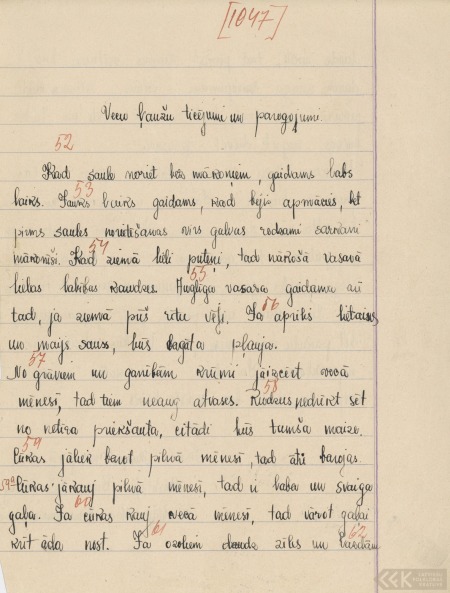 [1047]
Vecu ļaužu ticējumi un paregojumi.
52
Kad saule noriet bes mākoņiem, gaidams labs
53
laiks. Jauks laiks gaidams, kad bijis apmācies, bet
pirms saules norietēšanas virs galvas redsami sarkani
54
mākoņi. Kad ziemā lieli puteņi, tad nākošā vasarā
55
lielas labibas raudzes. Auglīga vasara gaidama arī
56
tad, ja ziemā pūš rītu vēji. Ja aprilis lietains
un maijs sauss, būs bagāta pļauja.
57
No grāviem un ganibām krūmi jāizcērt vecā
58
mēnesī, tad tiem neaug atvases. Rudzus nedrīkst sēt
no netīra priekšauta, citādi būs tumša maize.
59
Cūkas jāliek barot pilnā mēnesī, tad ātri barojas.
59a Cūkas jākauj pilnā mēnesī, tad ir laba un svaiga
60
gaļa. Ja cūkas kauj vecā mēnesī, tad vārot gaļai
61 62
krīt ēda nost. Ja ozoliem daudz zīles un lazdām